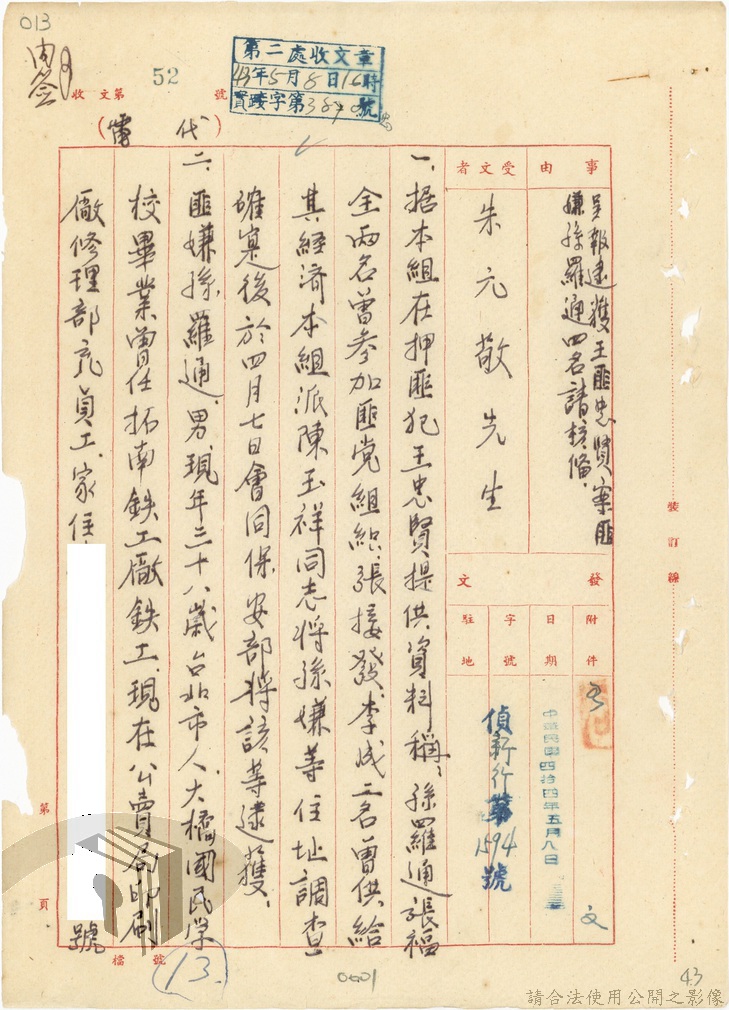 013
收文第 52 號
第二處收文章
43年5月8日16時
(代電)
事由
呈報逮獲王匪忠賢案匪
嫌孫羅通四名請核備.
受文者
朱元敬先生
發文
附件
日期
中華民國四拾四年五月八日
字號
偵新行第1594號
駐地
一、据本組在押匪犯王忠賢提供資料稱、孫羅通張福
全兩名曾參加匪党組織.張接發.李成二名曾供給
其経済本組派陳玉祥同志将孫嫌等住址調查
確寔後於四月七日會同保安部将該等逮獲.
二.匪嫌孫羅通.男.現年三十八歲台北市人.大橋國民学
校畢業曾任拓南鉄工廠鉄工.現在公賣局印刷
廠修理部充員工.家住.
號
裝訂線
第 頁
檔 號
13.
0001
43
請合法使用公開之影像